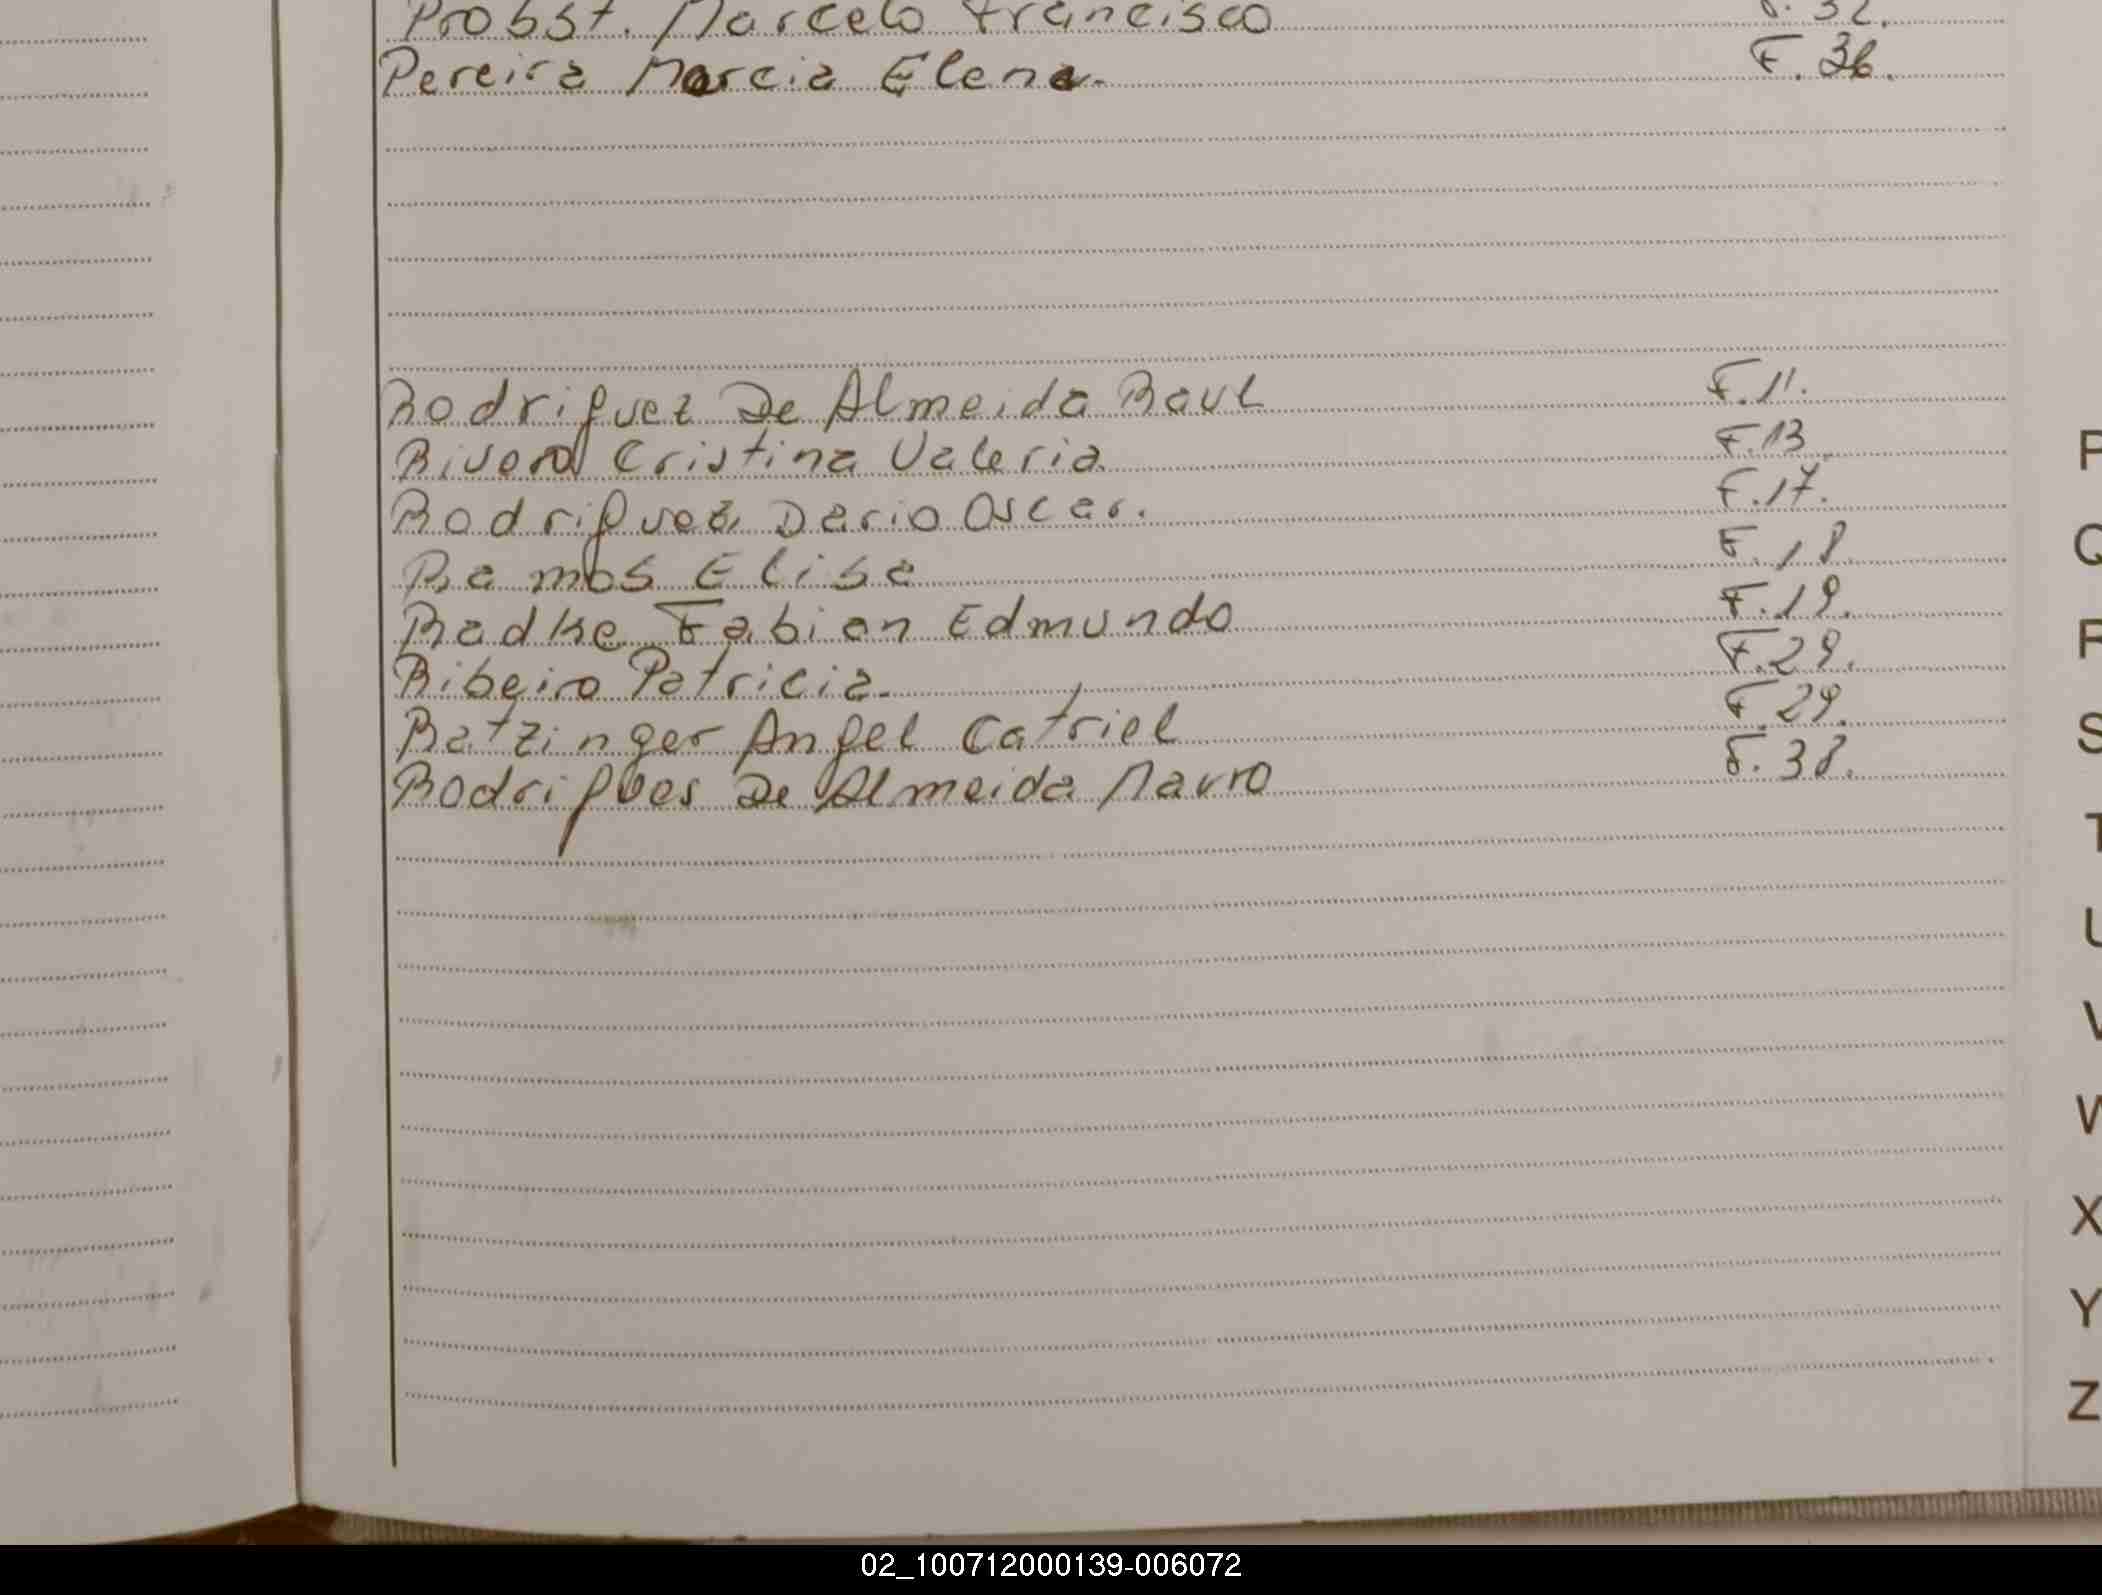 Probst. Marcelo Francisco F. 32.
Pereira Marcia Elena. F. 36.
Rodriguez De Almeida Raul F. 11.
Rivero Cristina Valeria. F. 13.
Rodriguez Dario Oscar. F. 17.
Ramos Elisa F. 18.
Radke Fabian Edmundo F. 19.
Ribeiro Patricia. F. 29.
Ratzinger Angel Catriel F. 29.
Rodrigues De Almeida Mauro F. 38.
P
Q
R
S
T
U
V
W
X
Y
Z
02_100712000139-006072